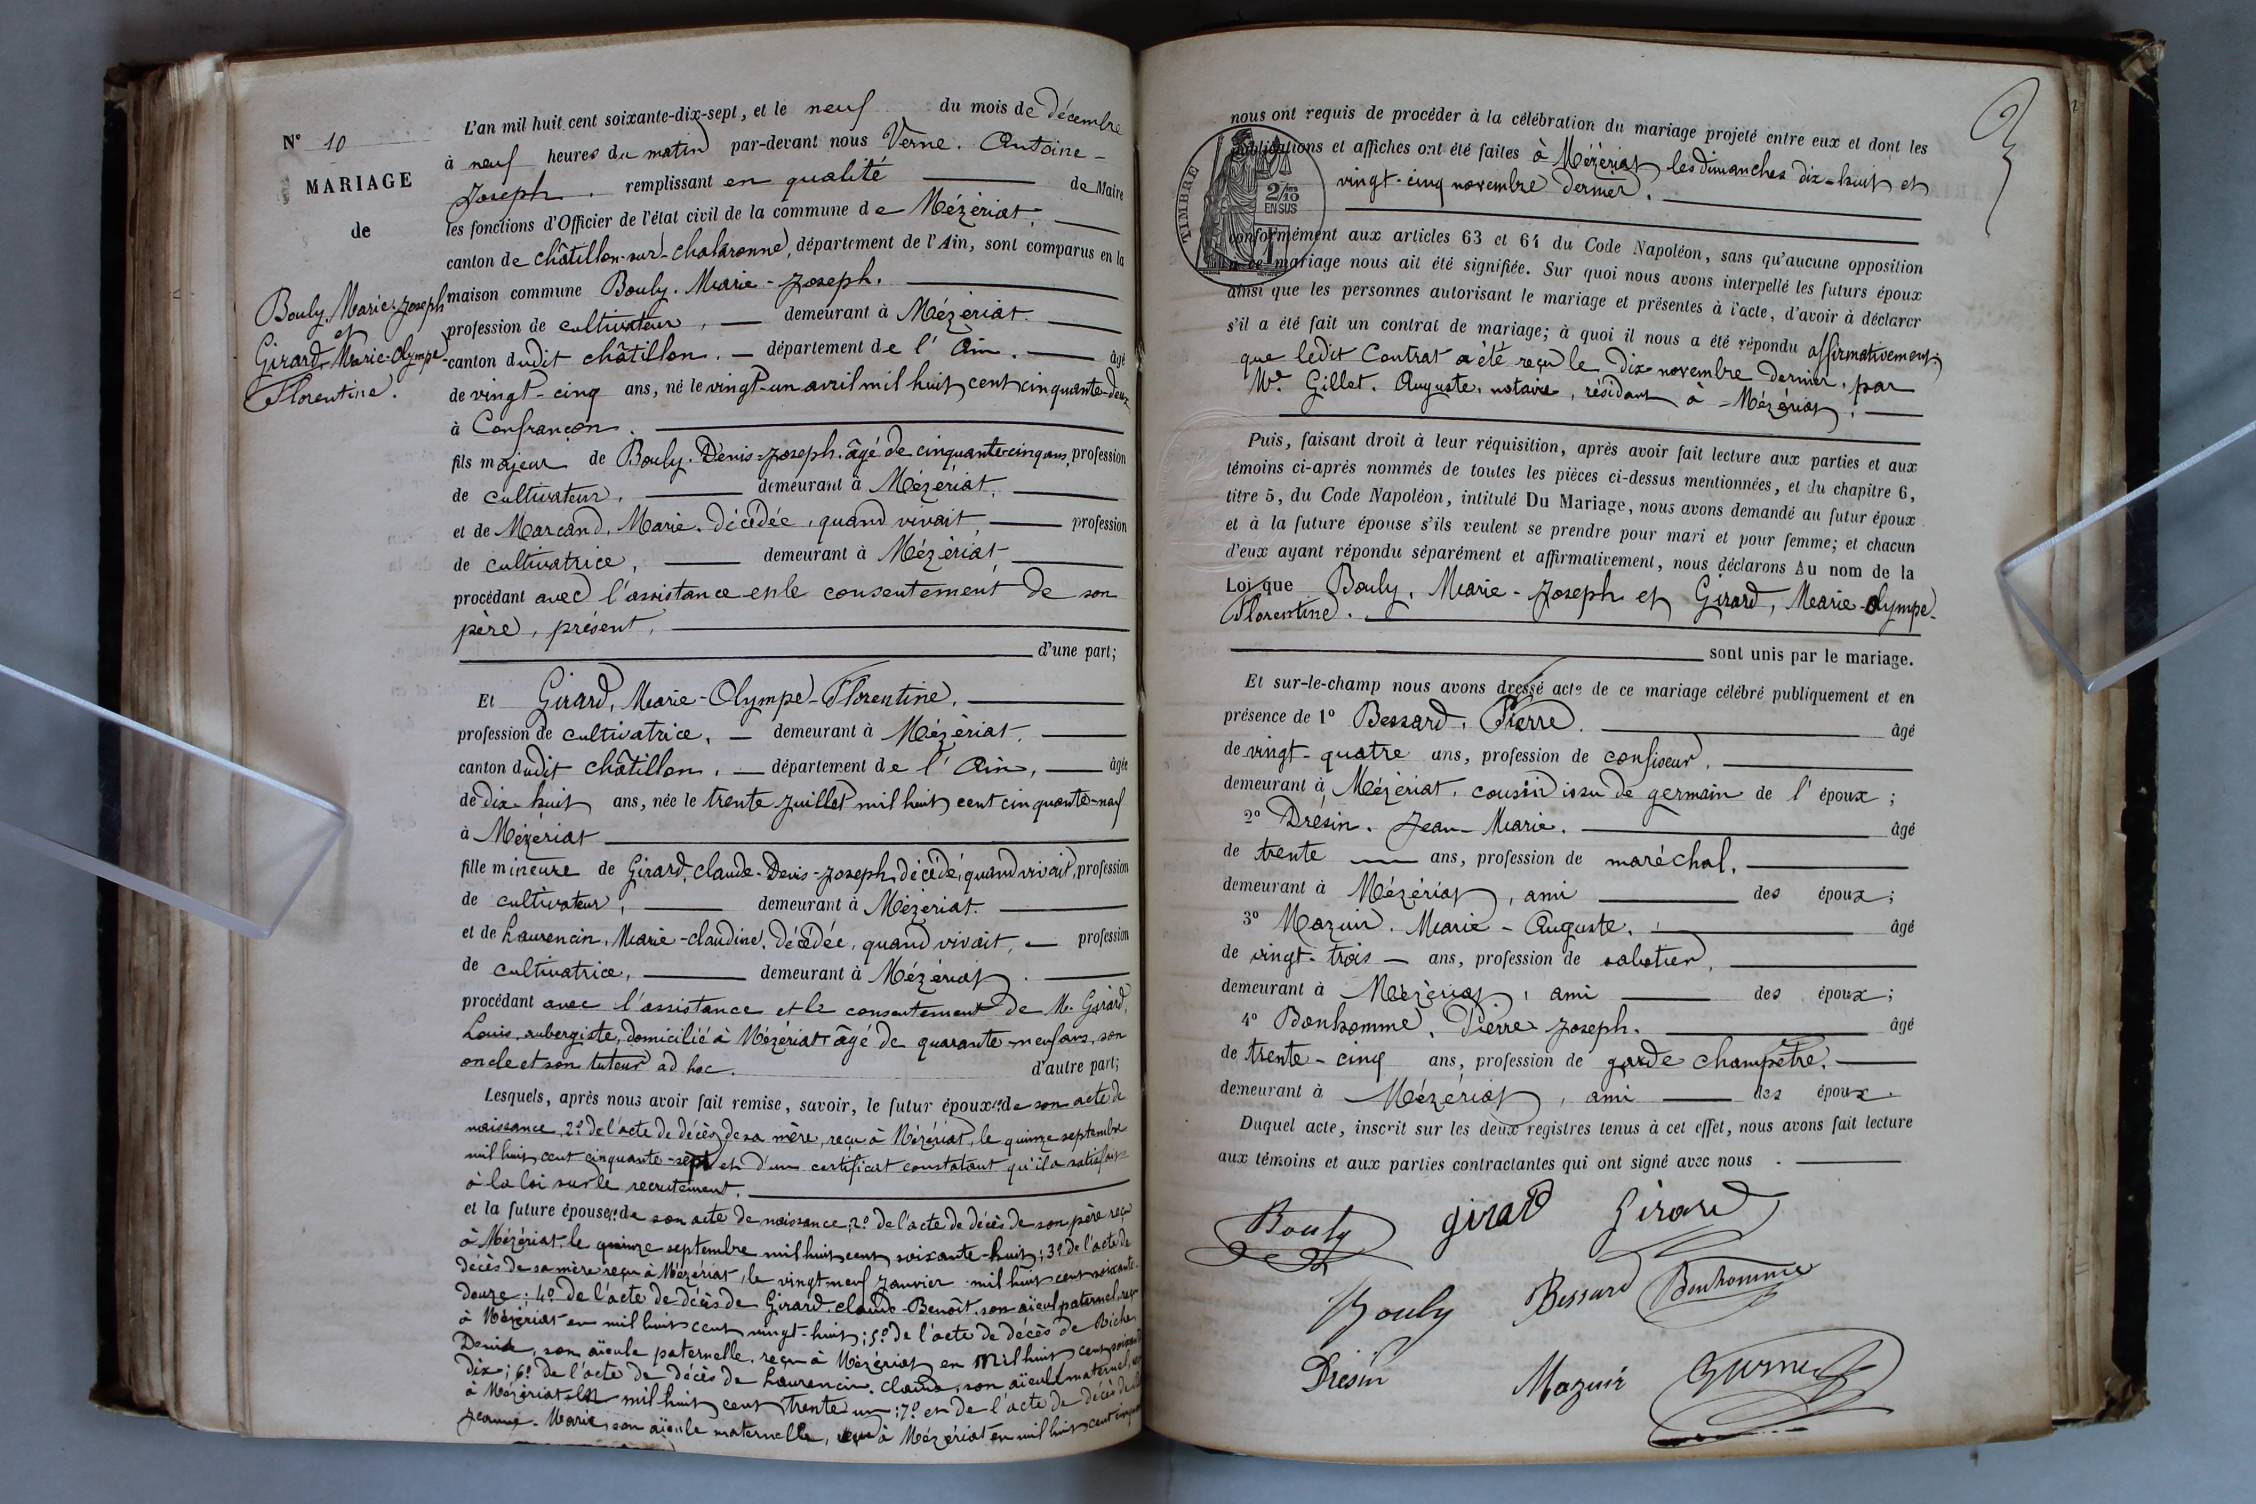 N° 10
MARIAGE
de
Bouly, Marie-Joseph
et
Girard, Marie-Olympe-
Florentine.
L'an mil huit cent soixante-dix-sept, et le neuf du mois de décembre
à neuf heures du matin par-devant nous Verne. Antoine-
Joseph. remplissant en qualité de Maire
les fonctions d'Officier de l'état civil de la commune de Mézériat,
canton de châtillon-sur-chalaronne, département de l'Ain, sont comparus en la
maison commune Bouly. Marie-Joseph.
profession de cultivateur, demeurant à Mézériat.
canton dudit châtillon. département de l'Ain. âgé
de vingt-cinq ans, né le vingt-un avril mil huit cent cinquante-deux
à Confrançon.
fils majeur de Bouly. Dénis-Joseph. âgé de cinquante-cinq ans, profession
de cultivateur, demeurant à Mézériat,
et de Marcand, Marie. décédée, quand vivait, profession
de cultivatrice, demeurant à Mézériat
procédant avec l'assistance et le consentement de son
père, présent,
d'une part;
Et Girard, Marie-Olympe-Florentine,
profession de cultivatrice, demeurant à Mézériat,
canton dudit châtillon, département de l'Ain, âgée
de dix-huit ans, née le trente Juillet mil huit cent cinquante-neuf
à Mézériat
fille mineure de Girard, claude-Denis-Joseph, décédé, quand vivait, profession
de cultivateur, demeurant à Mézériat.
et de Laurencin, Marie-claudine. décédée, quand vivait, profession
de cultivatrice, demeurant à Mézériat.
procédant avec l'assistance et le consentement de M. Girard,
Louis, aubergiste, domicilié à Mézériat, âgé de quarante-neuf ans, son
oncle et son tuteur ad hoc. d'autre part;
Lesquels, après nous avoir fait remise, savoir, le futur époux 1° de son acte de
naissance, 2° de l'acte de décès de sa mère, reçu à Mézériat, le quinze septembre
mil huit cent cinquante-sept et d'un certificat constatant qu'il a satisfait
à la loi sur le recrutement.
et la future épouse, 1° de son acte de naissance; 2° de l'acte de décès de son père reçu
à Mézériat, le quinze septembre mil huit cent soixante-huit; 3° de l'acte de
décès de sa mère reçu à Mézériat, le vingt-neuf Janvier mil huit cent soixante-
douze; 4° de l'acte de décès de Girard. claude-Benoît. son aïeul paternel, reçu
à Mézériat en mil huit cent vingt-huit; 5° de l'acte de décès de
Denise, son aïeule paternelle, reçu à Mézériat en mil huit cent
dix; 6° de l'acte de décès de Laurencin. Claude, son aïeul maternel,
à Mézériat en mil huit cent trente un; 7° et de l'acte de décès de
Jeanne-Marie, son aïeule maternelle, reçu à Mézériat en mil huit cent
nous ont requis de procéder à la célébration du mariage projeté entre eux et dont les
publications et affiches ont été faites à Mézériat les dimanches dix-huit et
vingt-cinq novembre dernier.
TIMBRE
2/10
EN SUS
conformément aux articles 63 et 64 du Code Napoléon, sans qu'aucune opposition
à ce mariage nous ait été signifiée. Sur quoi nous avons interpellé les futurs époux
ainsi que les personnes autorisant le mariage et présentes à l'acte, d'avoir à déclarer
s'il a été fait un contrat de mariage; à quoi il nous a été répondu affirmativement;
que ledit Contrat a été reçu le dix novembre dernier, par
Me Gillet. Auguste, notaire, résidant à Mézériat.
Puis, faisant droit à leur réquisition, après avoir fait lecture aux parties et aux
témoins ci-après nommés de toutes les pièces ci-dessus mentionnées, et du chapitre 6,
titre 5, du Code Napoléon, intitulé Du Mariage, nous avons demandé au futur époux
et à la future épouse s'ils veulent se prendre pour mari et pour femme; et chacun
d'eux ayant répondu séparément et affirmativement, nous déclarons Au nom de la
Loi que Bouly, Marie-Joseph et Girard, Marie-Olympe-
Florentine.
sont unis par le mariage.
Et sur-le-champ nous avons dressé acte de ce mariage célébré publiquement et en
présence de 1° Bessard, Pierre. âgé
de vingt-quatre ans, profession de confiseur,
demeurant à Mézériat, cousin issu de germain de l'époux;
2° Drésin. Jean-Marie. âgé
de trente ans, profession de maréchal,
demeurant à Mézériat, ami des époux;
3° Mazuir. Marie-Auguste, âgé
de vingt-trois ans, profession de sabotier,
demeurant à Mézériat, ami des époux;
4° Bonhomme, Pierre-Joseph. âgé
de trente-cinq ans, profession de garde champêtre,
demeurant à Mézériat, ami des époux.
Duquel acte, inscrit sur les deux registres tenus à cet effet, nous avons fait lecture
aux témoins et aux parties contractantes qui ont signé avec nous.
Bouly girard Girard
Bouly Bessard Bonhomme
Drésin Mazuir Verne